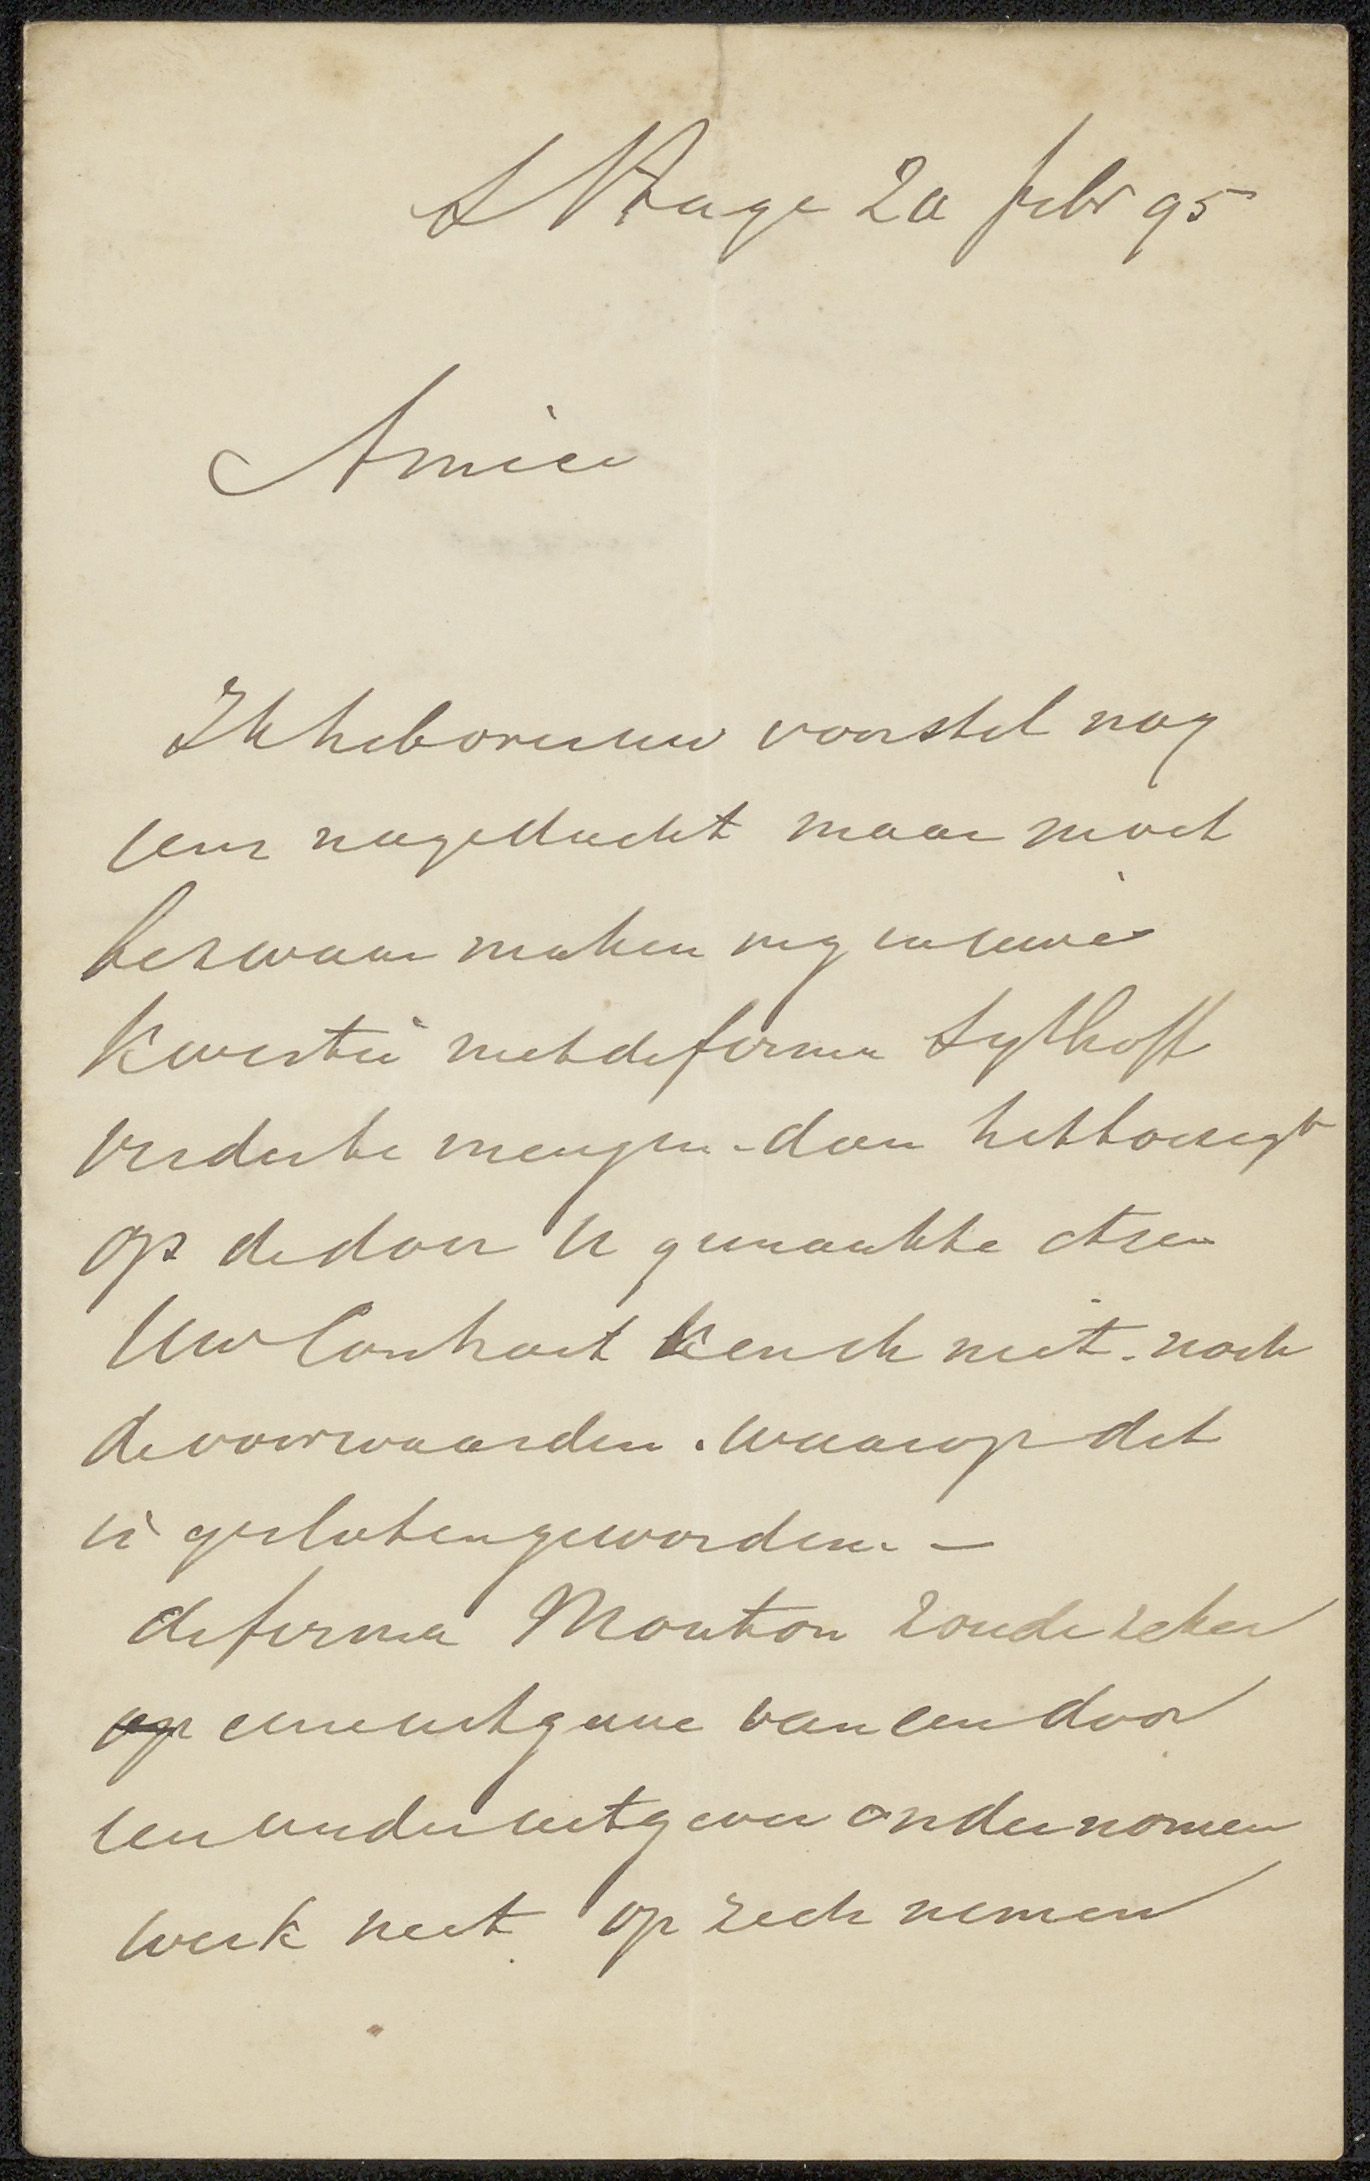 s Hage 20 febr 95
Amice
Ik heb over uw voorstel nog
eens nagedacht maar moet
bezwaar maken mij in uwe
kwestie met de firma Sythoff
verder te mengen - dan het toezigt
op de door U gemaakte etsen
Uw Contract ken ik niet. noch
de voorwaarden. waarop dit
is gesloten geworden. —
de firma Mouton zoude zeker
op eene uitgave van een door
een ander uitgever ondernomen
werk niet op zich nemen